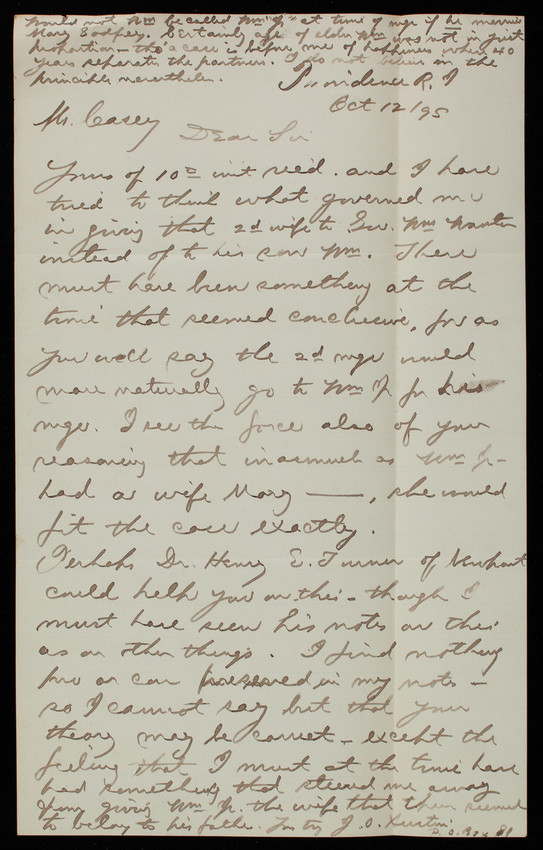 Would not Wm be called Wm Jr at time of mge if he married
Mary Godfrey. Certainly age of elder Wm was not in just
proportion - tho' a case is before me of happiness when 40
years separate the partners. I do not believe in the
principle nevertheless.
Providence R. I
Oct 12/95
Mr. Casey
Dear Sir
Yours of 10th inst recd. and I have
tried to think what governed me
in giving that 2d wife to Gov. Wm Wanton
instead of to his son Wm. There
must have been something at the
time that seemed conclusive, for as
you well say the 2d mge would
more naturally go to Wm Jr for his
mge. I see the force also of your
reasoning that inasmuch as Wm Jr -
had as wife Mary ——, she would
fit the case exactly.
Perhaps Dr. Henry E. Turner of Newport
could help you on this - though I
must have seen his notes on this
as on other things. I find nothing
pro or con preserved in my notes -
so I cannot say but that your
theory may be correct - except the
feeling that I must at the time have
had something that steered me away
from giving Wm Jr. the wife that then seemed
to belong to his father. Yrs try J. O. Austin
P. O. Box 81